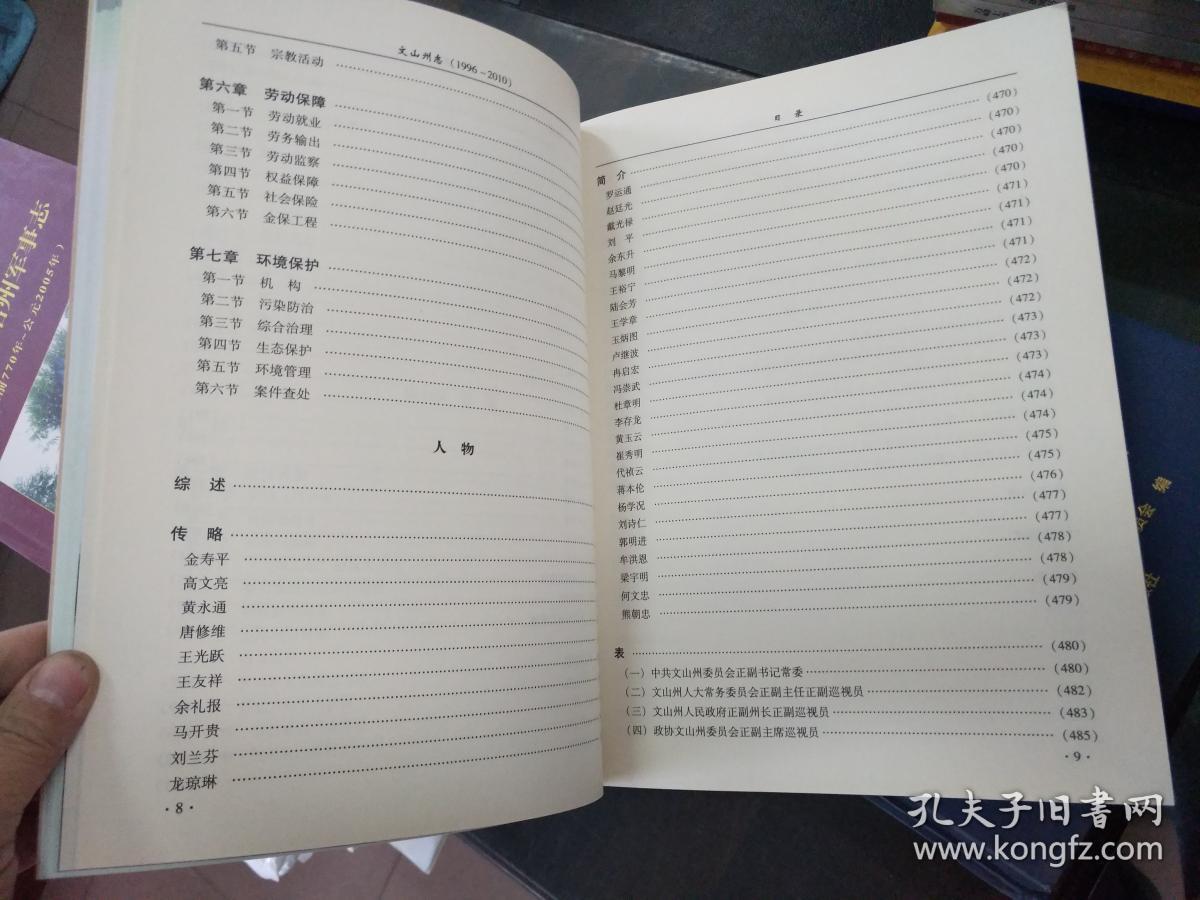 文山州志（1996-2010）
第五节 宗教活动
第六章 劳动保障
第一节 劳动就业
第二节 劳务输出
第三节 劳动监察
第四节 权益保障
第五节 社会保险
第六节 金保工程
第七章 环境保护
第一节 机 构
第二节 污染防治
第三节 综合治理
第四节 生态保护
第五节 环境管理
第六节 案件查处
人 物
综 述
传 略
金寿平
高文亮
黄永通
唐修维
王光跃
王友祥
余礼报
马开贵
刘兰芬
龙琼琳
·8·
目 录
简 介 (470)
罗运通 (470)
赵廷光 (470)
戴光禄 (470)
刘 平 (470)
余东升 (471)
马黎明 (471)
王裕宁 (471)
陆会芳 (471)
王学章 (472)
王炳图 (472)
卢继波 (472)
冉启宏 (473)
冯崇武 (473)
杜章明 (473)
李存龙 (474)
黄玉云 (474)
崔秀明 (474)
代祯云 (475)
蒋本伦 (475)
杨学况 (476)
刘诗仁 (477)
郭明进 (477)
牟洪恩 (478)
梁宇明 (478)
何文忠 (479)
熊朝忠 (479)
表 (480)
（一）中共文山州委员会正副书记常委 (480)
（二）文山州人大常务委员会正副主任正副巡视员 (482)
（三）文山州人民政府正副州长正副巡视员 (483)
（四）政协文山州委员会正副主席巡视员 (485)
·9·
州军事志
前770年-公元2005年）
员会 编
孔夫子旧书网
www.kongfz.com